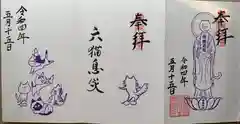 奉拝
令和四年
五月十三日
六猫息災
奉拝
令和四年
五月十三日